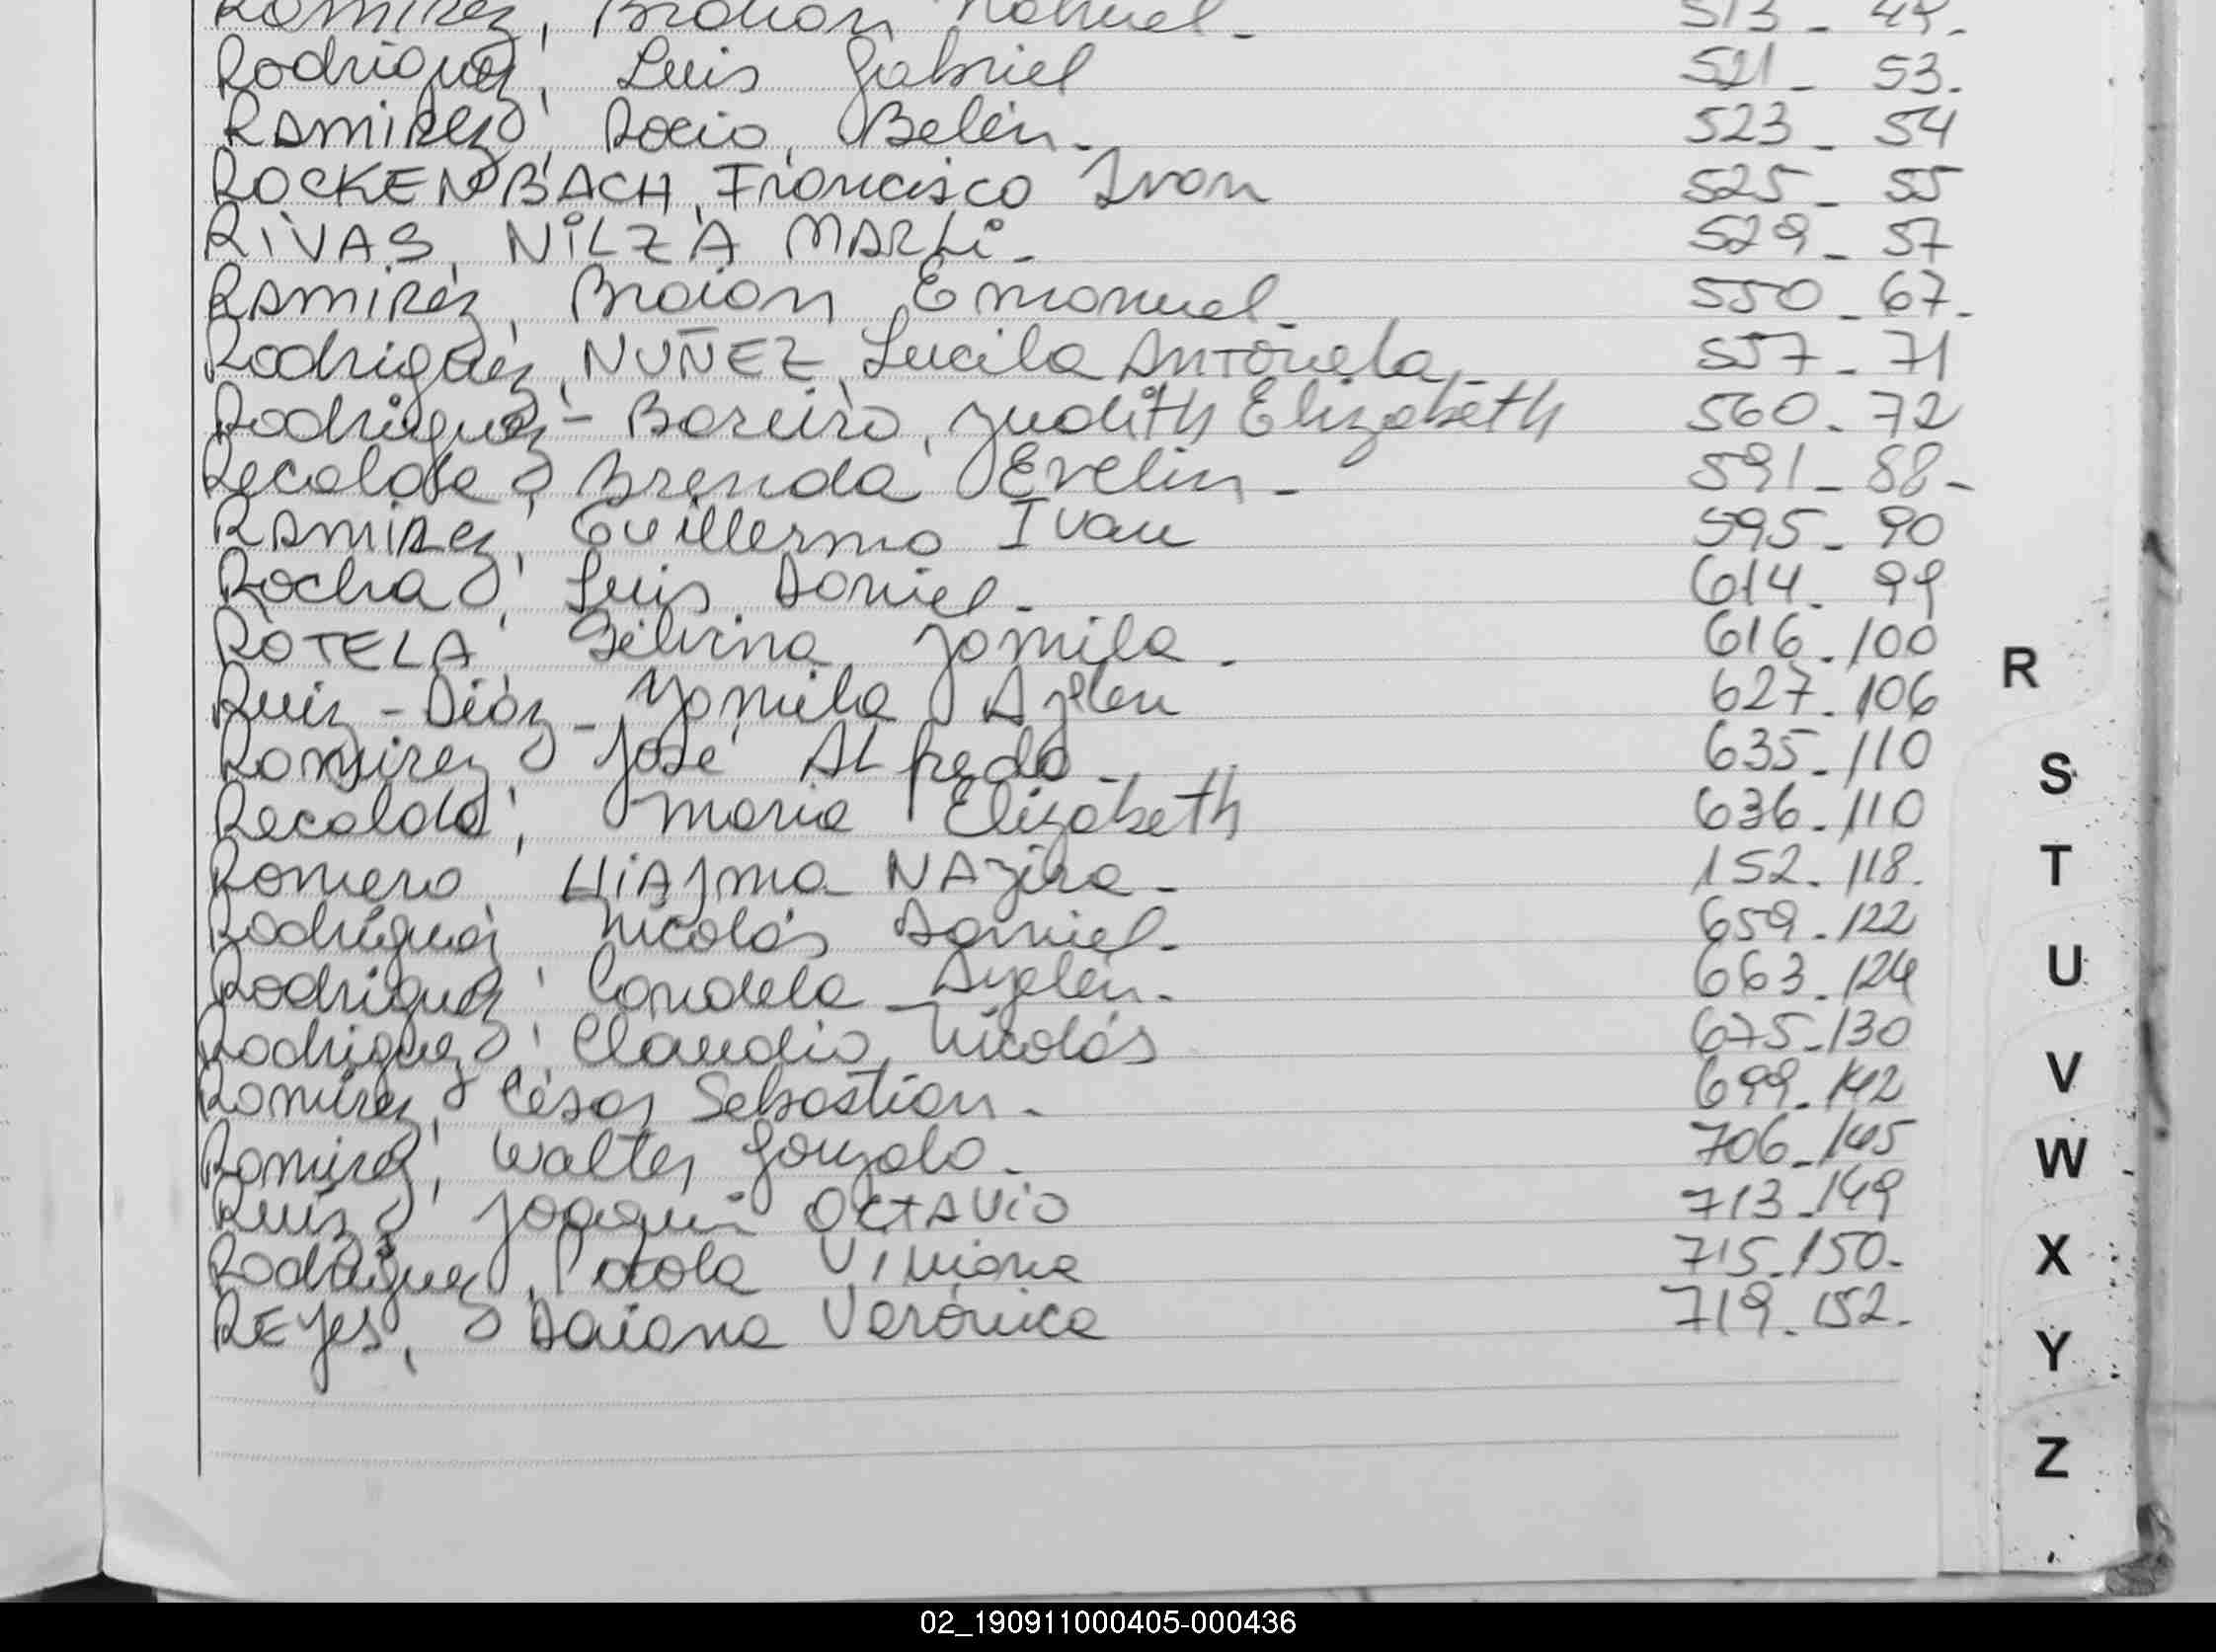 Ramirez, Braian Nahuel - 513 - 49.
Rodriguez, Luis Gabriel 521 - 53.
RAmiRez, Rocio Belén - 523 - 54
ROCKENBACH, Francisco Ivan 525 - 55
RiVAS, NiLZA MARLi - 529 - 57
RAmiRez, Braian Emanuel - 550 - 67.
Rodriguez, NUÑEZ, Lucila Antonela - 557 - 71
Rodriguez - Bareiro, Judith Elizabeth 560 - 72
Recalde, Brenda Evelin - 591 - 88 -
RAmiRez, Guillermo Ivan 595 - 90
Rocha, Luis Daniel - 614 - 99
ROTELA, Silvina Jamila - 616 - 100
R
Ruiz - Diáz - Yamila Ayelen 627 - 106
Ramirez, José ALfredo - 635 - 110
S
Recalde, Maria Elizabeth 636 - 110
Romero NAzira - 152 - 118.
T
Rodriguez Nicolás Daniel - 659 - 122
Rodriguez, Candela Ayelén - 663 - 124
U
Rodriguez, Claudio Nicolás 675 - 130
Ramirez, César Sebastian - 699 - 142
V
Ramirez, Walter Gonzalo - 706 - 145
W
Ruiz, Joaquin OCTAViO 713 - 149
Rodriguez, Paola Viviana 715 - 150 -
X
REyes, Daiana Verónica 719 - 152 -
Y
Z
02_190911000405-000436